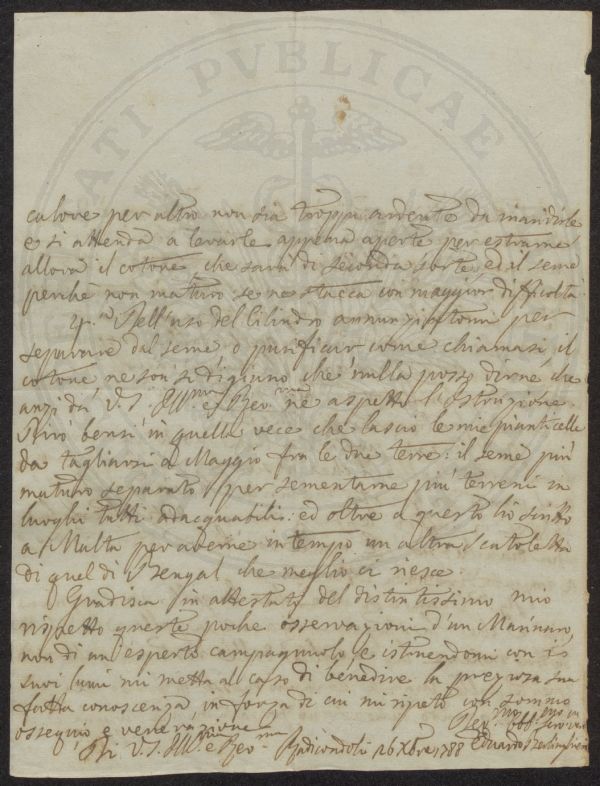 PVBLICAE
calore per altro non sia troppo ardente da inaridirle
e si attenda a lavarle appena aperte per estrarne
allora il cotone, che sarà di seconda sorte ed il seme
perchè non maturo se ne stacca con maggior difficoltà
4.to Nell'uso del Cilindro annunziatomi per
separare dal seme o purificar come chiamasi il
cotone ne son sì digiuno che nulla posso dirne che
anzi da V. S. Illma e Revma ne aspetto l'istruzione.
Dirò bensì in quella vece che lascio le mie pianticelle
da tagliarsi a Maggio fra le due terre: il seme più
maturo separato per sementarne più terreni in
luoghi tutti adacquabili: ed oltre a questo ho scritto
a Malta per averne in tempo un altra scatoletta
di quel di Bengal che meglio ci riesce.
Gradisca in attestato del distintissimo mio
rispetto queste poche osservazioni d'un Marinaro,
non di un esperto campagnuolo e istruendomi con i
suoi lumi mi metta al caso di benedire la preziosa sua
fatta conoscenza in forza di cui mi ripeto con sommo
ossequio e venerazione
Di V. S. Illma e Revma Radicondoli 26 Xbre 1788
Eduardo Berlinghieri